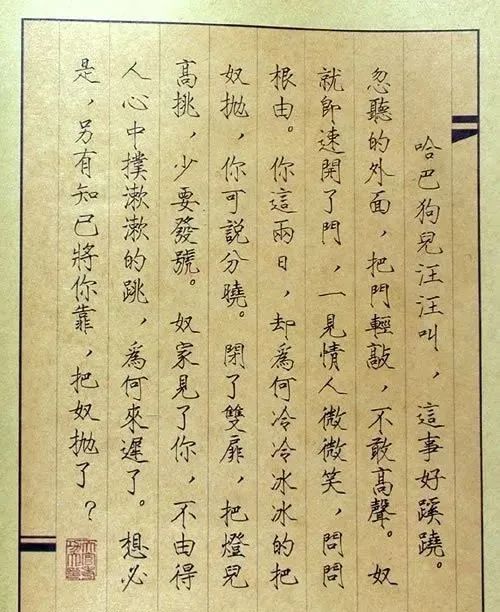 哈巴狗見汪汪叫，這事好蹊蹺。
忽聽的外面，把門輕敲，不敢高聲。奴
就即速開了門，一見情人微微笑，問問
根由。你這兩日，却為何冷冷冰冰的把
奴拋，你可說分曉。閉了雙扉，把燈兒
高挑，少要發號。奴家見了你，不由得
人心中撲漱漱的跳，為何來遲了。想必
是，另有知已將你靠，把奴拋了？